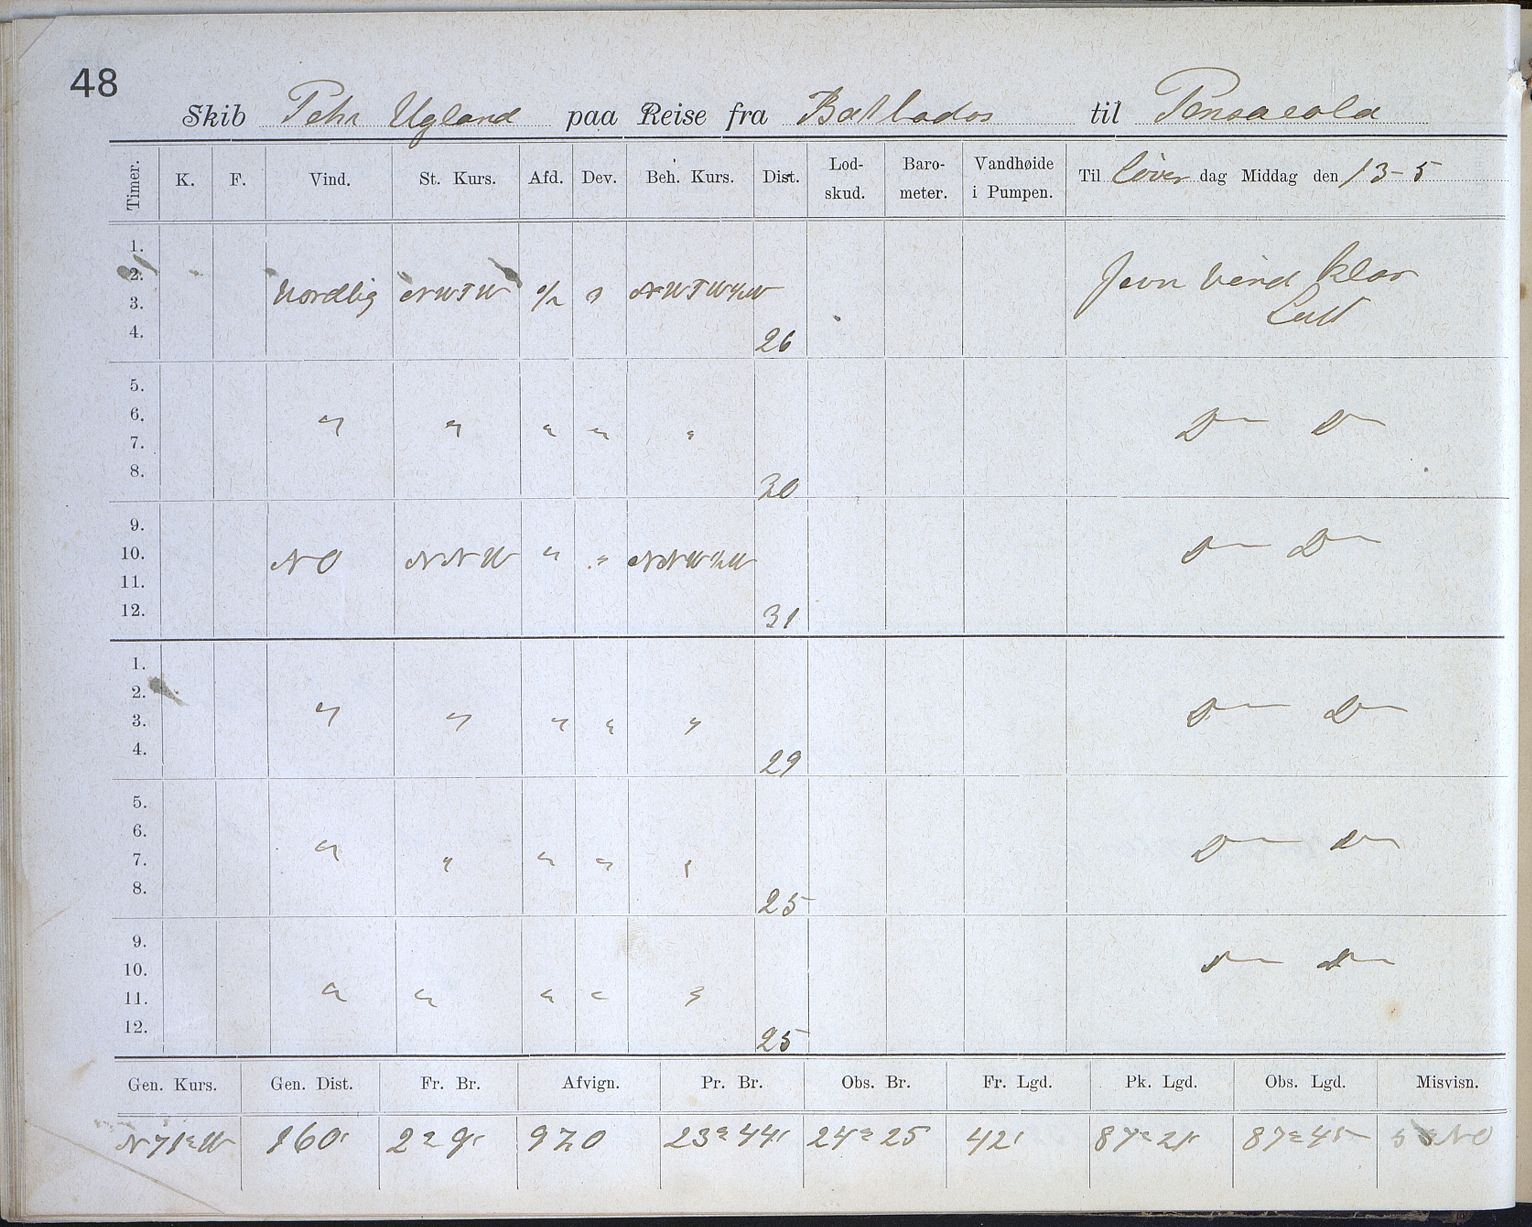 48
Skib Pehr Ugland paa Reise fra Barbados til Pensacola
Timer. K. F. Vind. St. Kurs. Afd. Dev. Beh. Kurs. Dist. Lod-skud. Baro-meter. Vandhøide i Pumpen. Til Löver dag Middag den 13-5
1.
2.
3. Nordlig NWTW 1/2 NWTW1/2W Jevn Vind klar
4. 26 Luft
5.
6. " " " " " Do Do
7.
8. 30
9.
10. NO NNW " " NNW1/2W Do Do
11.
12. 31
1.
2.
3. " " " " " Do Do
4. 29
5.
6. Do Do
7. " " " " "
8. 25
9.
10. Do Do
11. " " " " "
12. 25
Gen. Kurs. Gen. Dist. Fr. Br. Afvign. Pr. Br. Obs. Br. Fr. Lgd. Pk. Lgd. Obs. Lgd. Misvisn.
N 71° W 160' 2° 9' 23° 44' 24° 25 42' 87° 21' 87° 45 5° NO